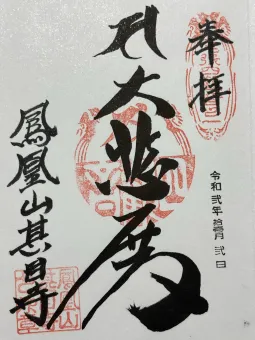 奉拝
令和弐年拾壱月弐日
大悲殿
鳳凰山甚目寺